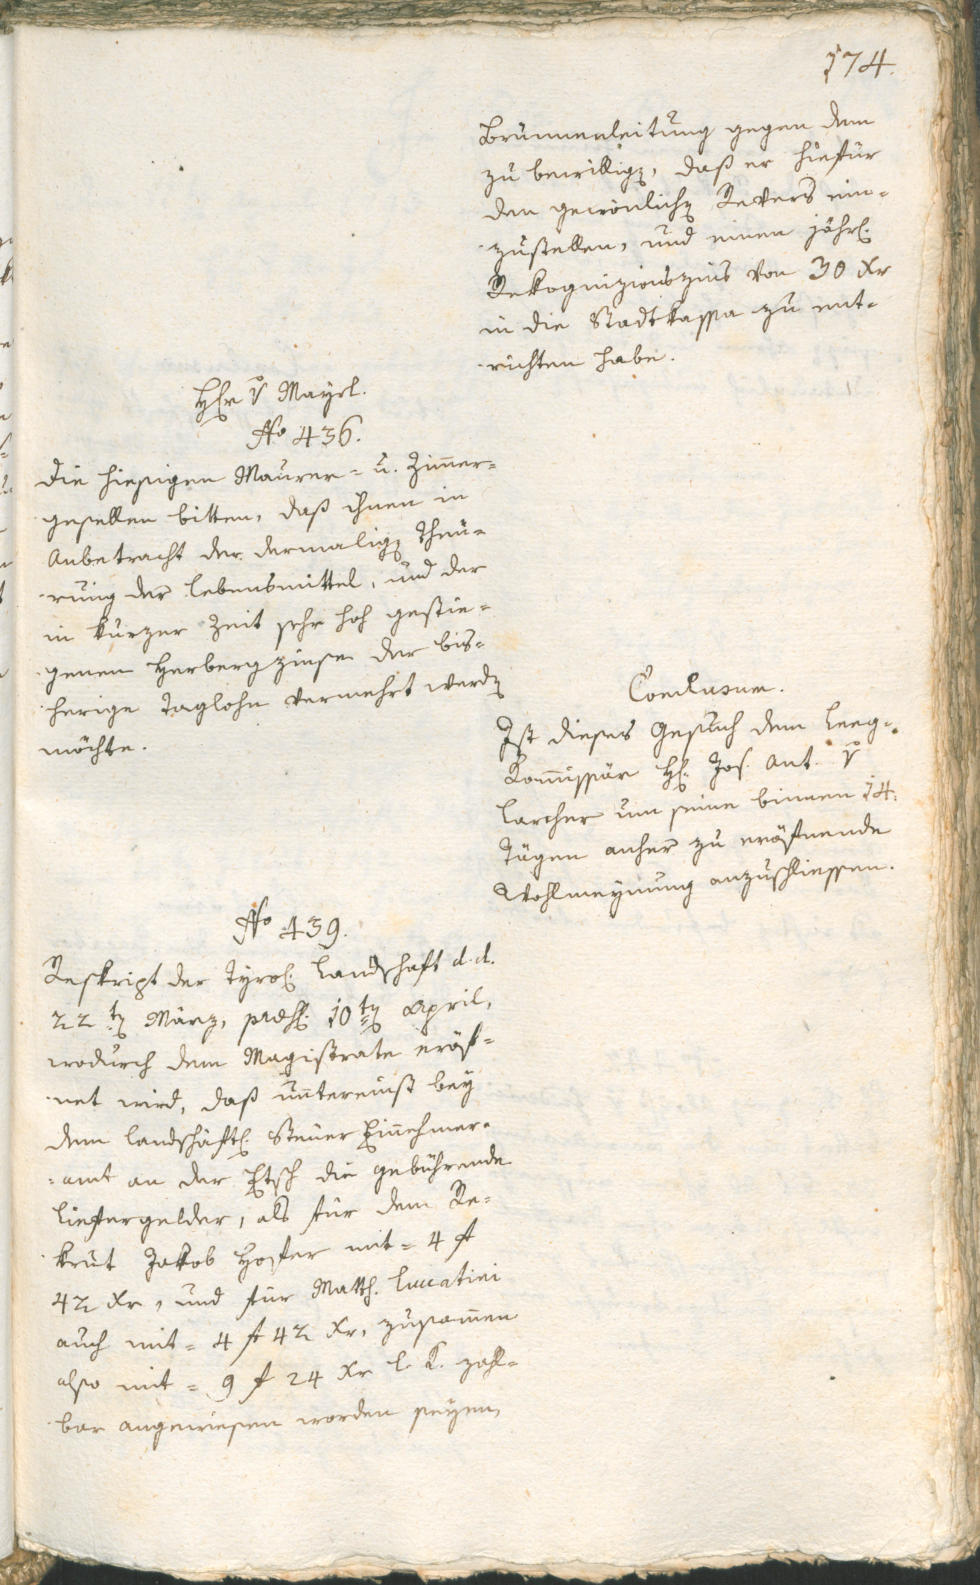 174.
Brunnenleitung gegen dem
zu bewillig, daß er hiefür
den gewönlich Revers ein-
zustellen, und einen jährl:
Rekognizionszins von 30 Xr
in die Stadtkassa zu ent-
richten habe.
Hr v Mayrl.
No 436.
Die hiesigen Maurer- u. Zimmer-
gesellen bitten, daß ihnen in
Anbetracht der dermalig Theu-
rung der Lebensmittel, und der
in kurzer Zeit sehr hoh gestie-
genen Herbergzinse der bis-
herige Taglohn vermehrt werd
möchte.
Conclusum.
Ist dieses Gesuch dem Leeg-
Kommissär H: Jos. Ant. v
Larcher um seine binnen 14.
Tägen anher zu eröfnende
Wohlmeynung anzuschliessen.
No 439.
Reskript der Tyrol: Landschaft d. d.
22t März, præs: 10t April,
wodurch dem Magistrate eröf-
net wird, daß untereinst bey
dem landschäftl: Steuer Einnehmer-
amt an der Etsch die gebührende
Liefergelder, als für dem Re-
krut Jakob Hofer mit = 4 f
42 Xr, und für Matth. Luccatini
auch mit = 4 f 42 Xr, zusammen
also mit = 9 f 24 Xr l. K. zahl-
bar angewiesen worden seyen,